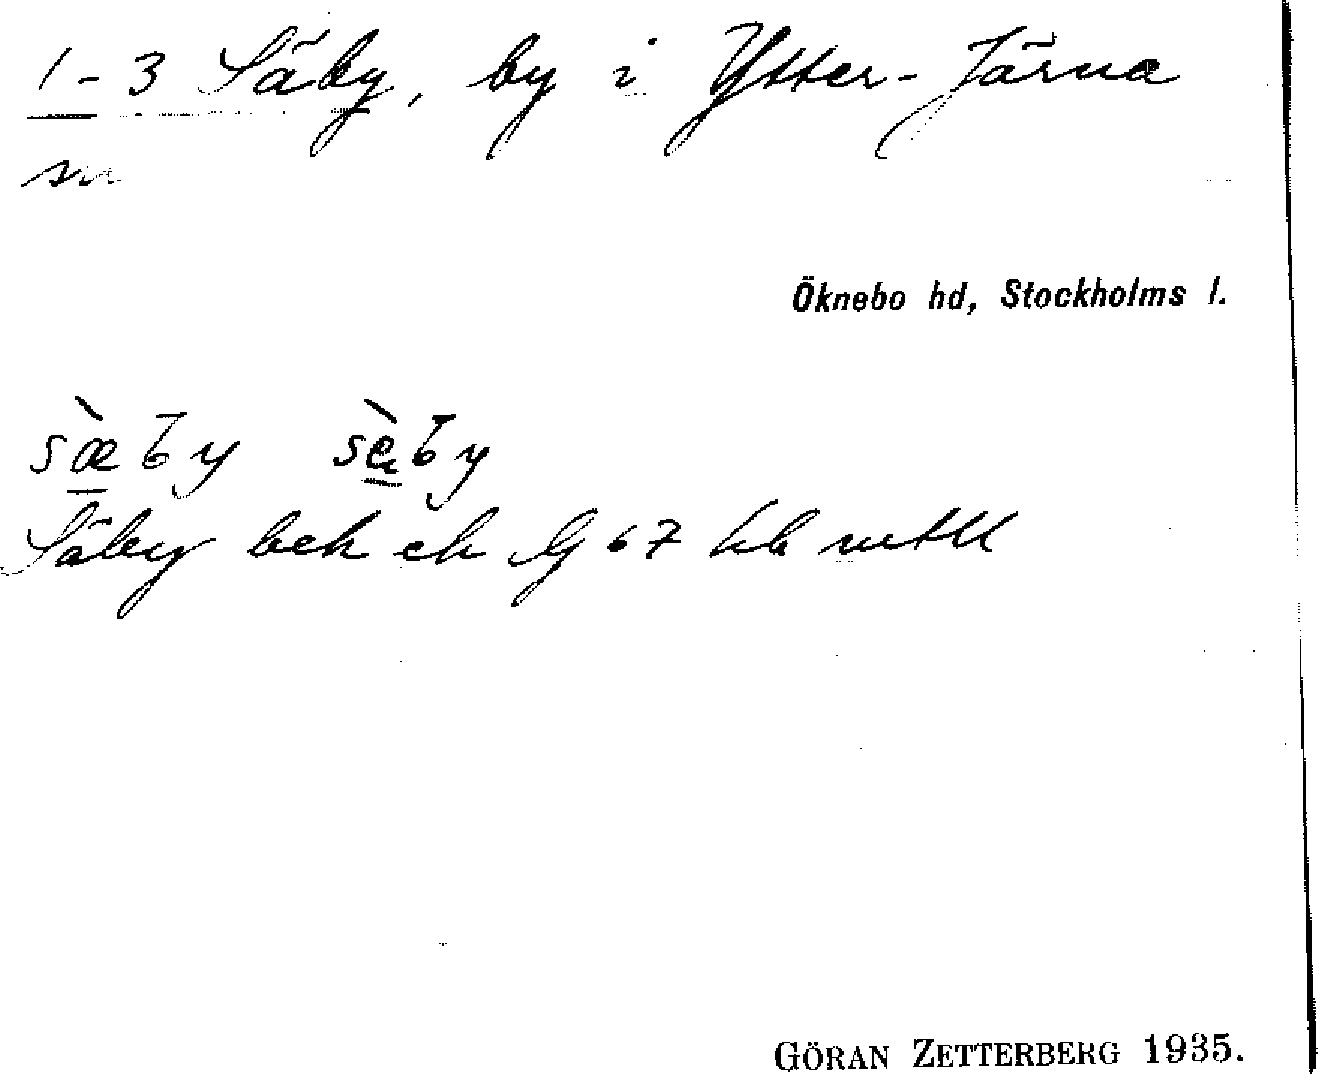 1-3 Säby, by i Ytter-Järna
sn
Öknebo hd, Stockholms l.
sæ̀by sèby
Säby bek ek G 67
GÖRAN ZETTERBERG 1935.